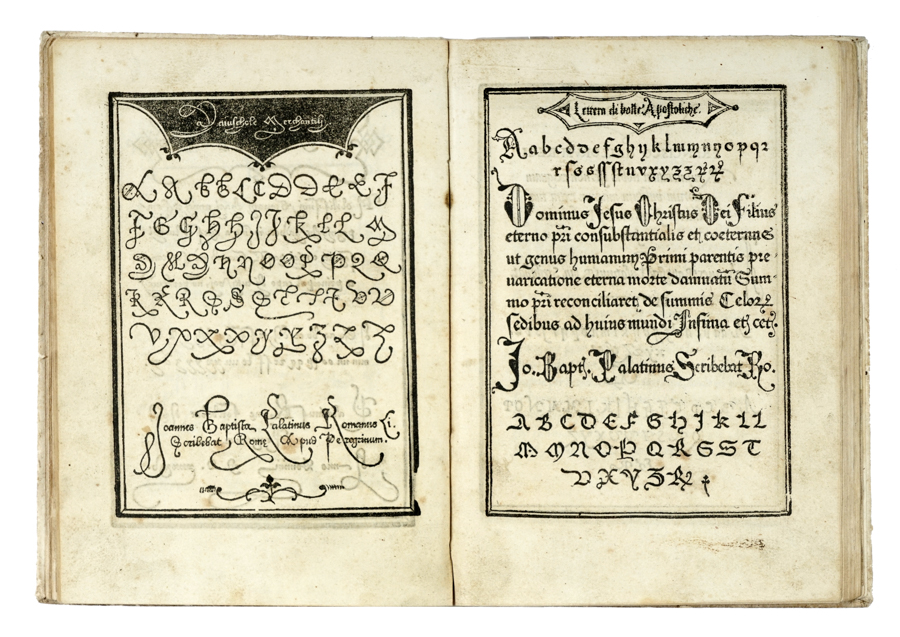 Maiuschole Merchantilj
A A B B C C D D E E F
F G G H H J J K L L M
Joannes Baptista Palatinus Romanus Ci.
Scribebat Rome Apud Peregrinum.
Lettera di bolle Apostoliche.
A a b c d d e f g h ij k l m n o p q r
r ſ s s ſſ t u v x y z
Dominus Jesus Christus Dei Filius
eterno pr̄i consubstantialis et coeternus
ut genus humanum Primi parentis pre
uaricatione eterna morte damnatū Sum
mo pr̄i reconciliaret de summis Celoꝝ
sedibus ad huius mundi Infima et cet.
Jo. Bapt. Palatinus Scribebat Ro.
A B C D E F G H J K L L
M N O P Q R S S T
V X Y Z Ꝝ